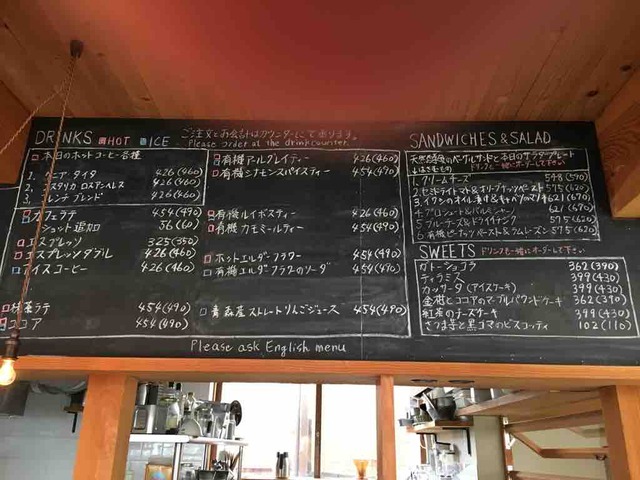 DRINKS HOT ICE
ご注文とお会計はカウンターにて承ります。
Please order at the drink counter.
本日のホットコーヒー各種
1. ケニア タイタ 426(460)
2. コスタリカ ロスアンヘレス 426(460)
3. フレンチ ブレンド 426(460)
カフェラテ 454(490)
ショット追加 56(60)
エスプレッソ 325(350)
エスプレッソダブル 426(460)
アイスコーヒー 426(460)
抹茶ラテ 454(490)
ココア 454(490)
有機アールグレイティー 426(460)
有機シナモンスパイスティー 454(490)
有機ルイボスティー 426(460)
有機カモミールティー 454(490)
ホットエルダーフラワー 454(490)
有機エルダーフラワーのソーダ 454(490)
青森産ストレートりんごジュース 454(490)
Please ask English menu
SANDWICHES & SALAD
天然酵母のベーグルサンドと本日のサラダプレート
ドリンクも一緒にオーダーして下さい
1. クリームチーズ 548(590)
2. セミドライトマト&オリーブナッツペースト 575(620)
3. イワシのオイル漬け&キャベツのマリネ 621(670)
4. プロシュート&パルミジャーノ 621(670)
5. ブルーチーズ&ドライイチヂク 575(620)
6. 有機ピーナッツペースト&ラムレーズン 575(620)
SWEETS ドリンクも一緒にオーダーして下さい
ガトーショコラ 362(390)
ティラミス 399(430)
カッサータ(アイスケーキ) 399(430)
金柑とココアのマーブルパウンドケーキ 362(390)
紅茶のチーズケーキ 399(430)
さつま芋と黒ゴマのビスコッティ 102(110)